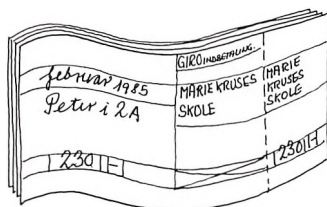 februar 1985
Peter i 2A
230 H
GIROINDBETALING.
MARIE KRUSES
SKOLE
MARIE
KRUSES
SKOLE
230 H